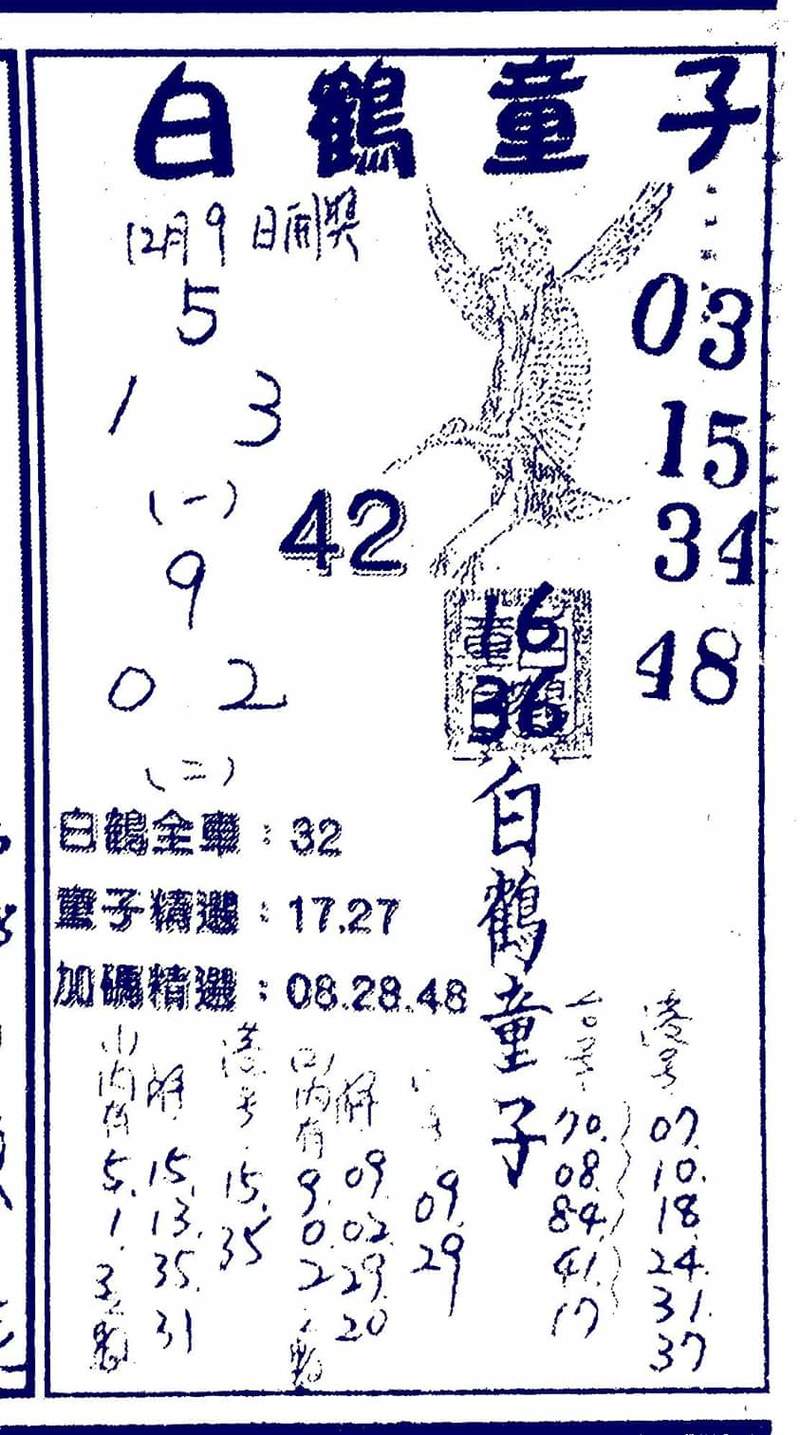 白鶴童子
12月9日開獎
5
1 3
(一)
9
0 2
(二)
42
03
15
34
48
16
36
白鶴童子
白鶴全車：32
童子精選：17.27
加碼精選：08.28.48
(一)內有
5.
1.
3.
解
15.
13.
35.
31
港号
15.
35
(二)內有
9.
0.
2
解
09.
02.
29.
20
09.
29
70.
08.
84.
41.
17
港号
07.
10.
18.
24.
31.
37